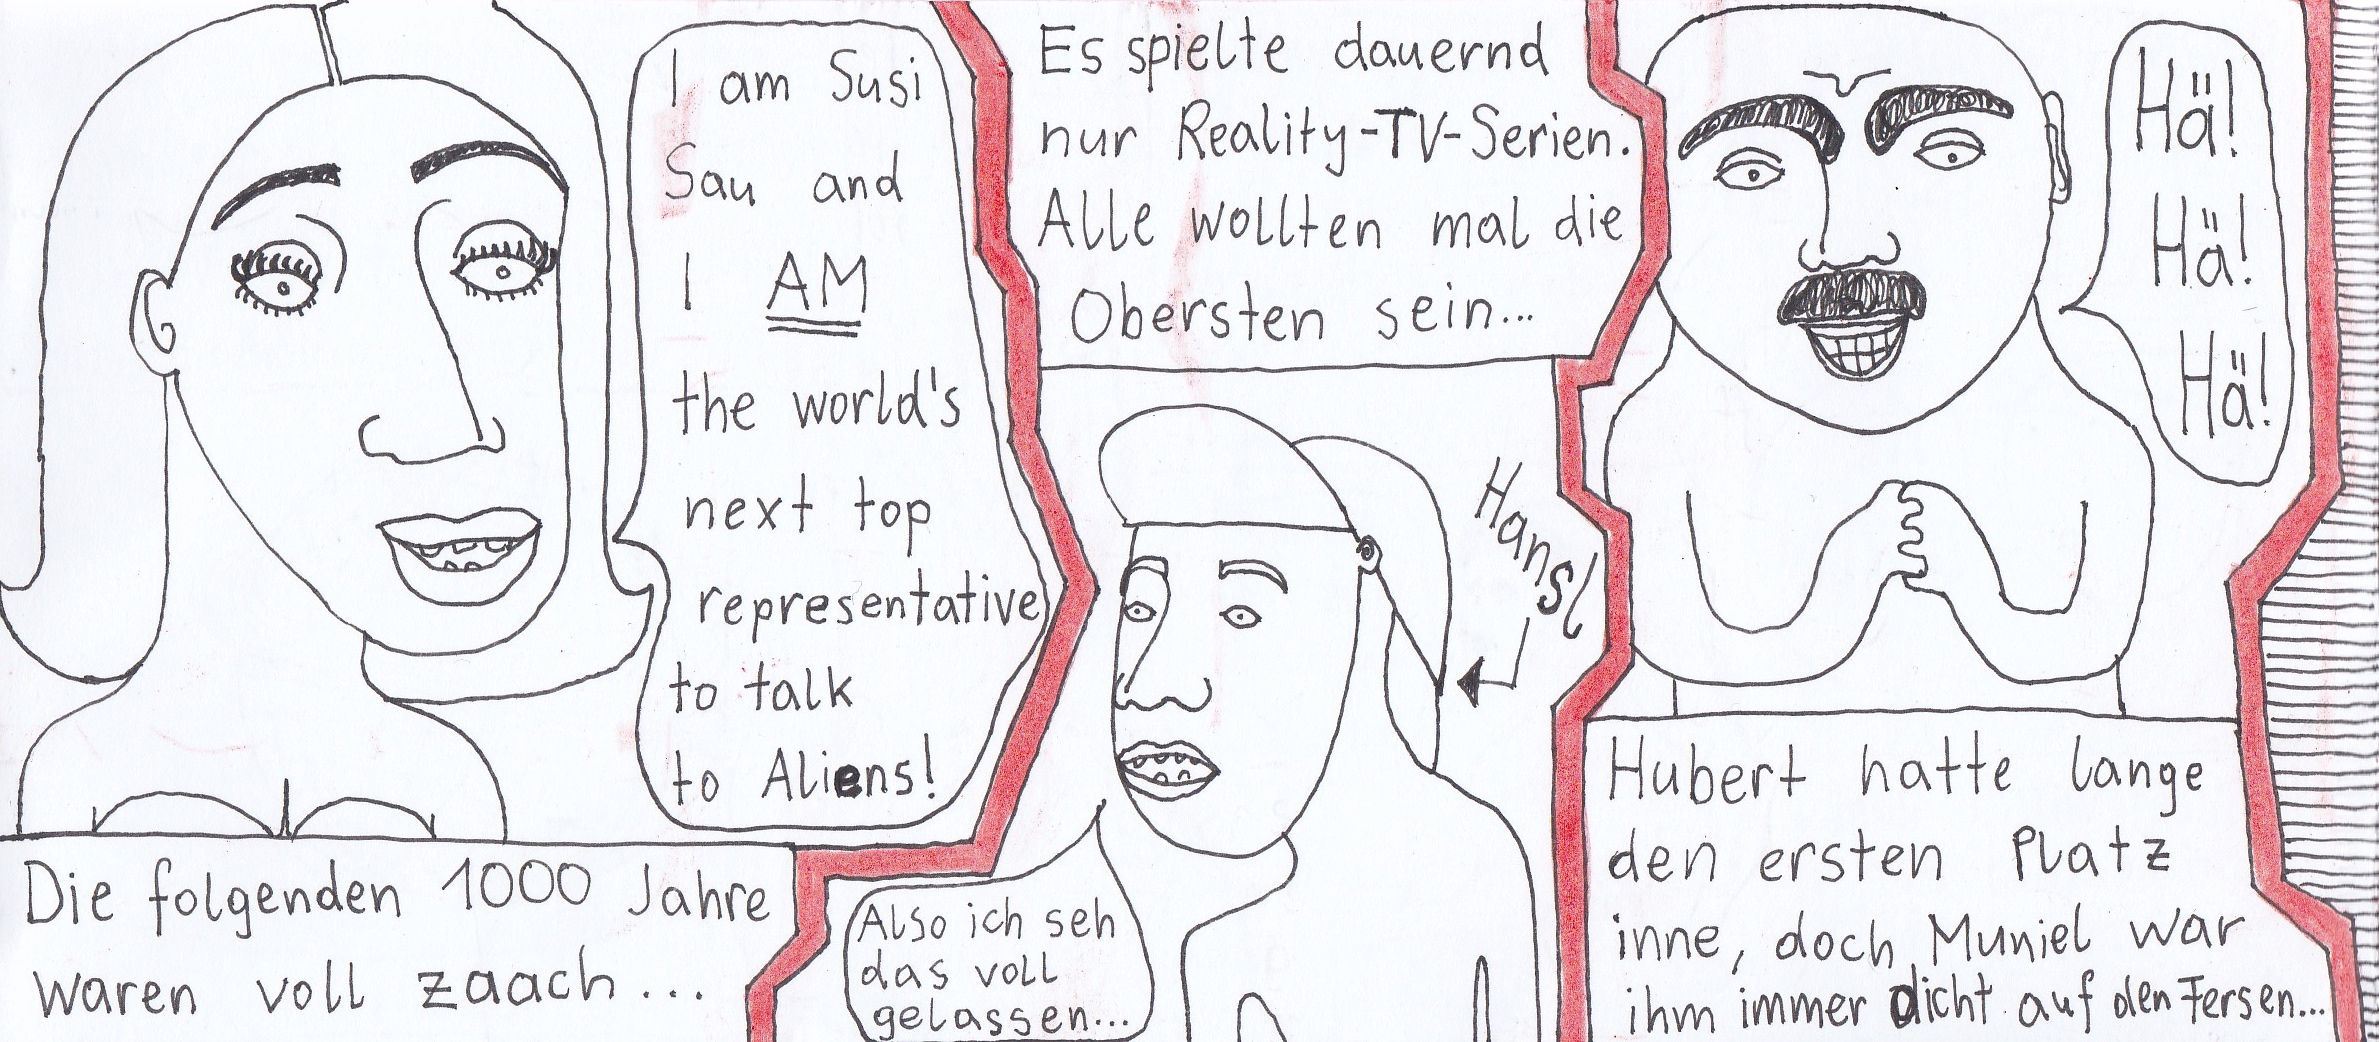 I am Susi
Sau and
I AM
the world's
next top
representative
to talk
to Aliens!
Die folgenden 1000 Jahre
waren voll zaach...
Es spielte dauernd
nur Reality-TV-Serien.
Alle wollten mal die
Obersten sein...
Hansl
Also ich seh
das voll
gelassen...
Hä!
Hä!
Hä!
Hubert hatte lange
den ersten Platz
inne, doch Muniel war
ihm immer dicht auf den Fersen...